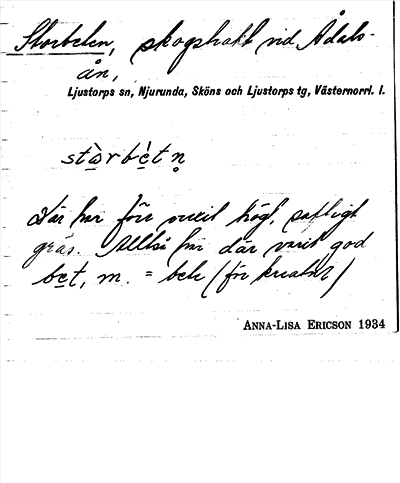 Storbeten, skogstrakt vid Ådals-
ån,
Ljustorps sn, Njurunda, Sköns och Ljustorps tg, Västernorrl. l.
stɷ̀rbèt n̥
Där har förr vuxit högt, saftigt
gräs. Alltså har där varit god
bet, m. = bete (för kreatur)
ANNA-LISA ERICSON 1934